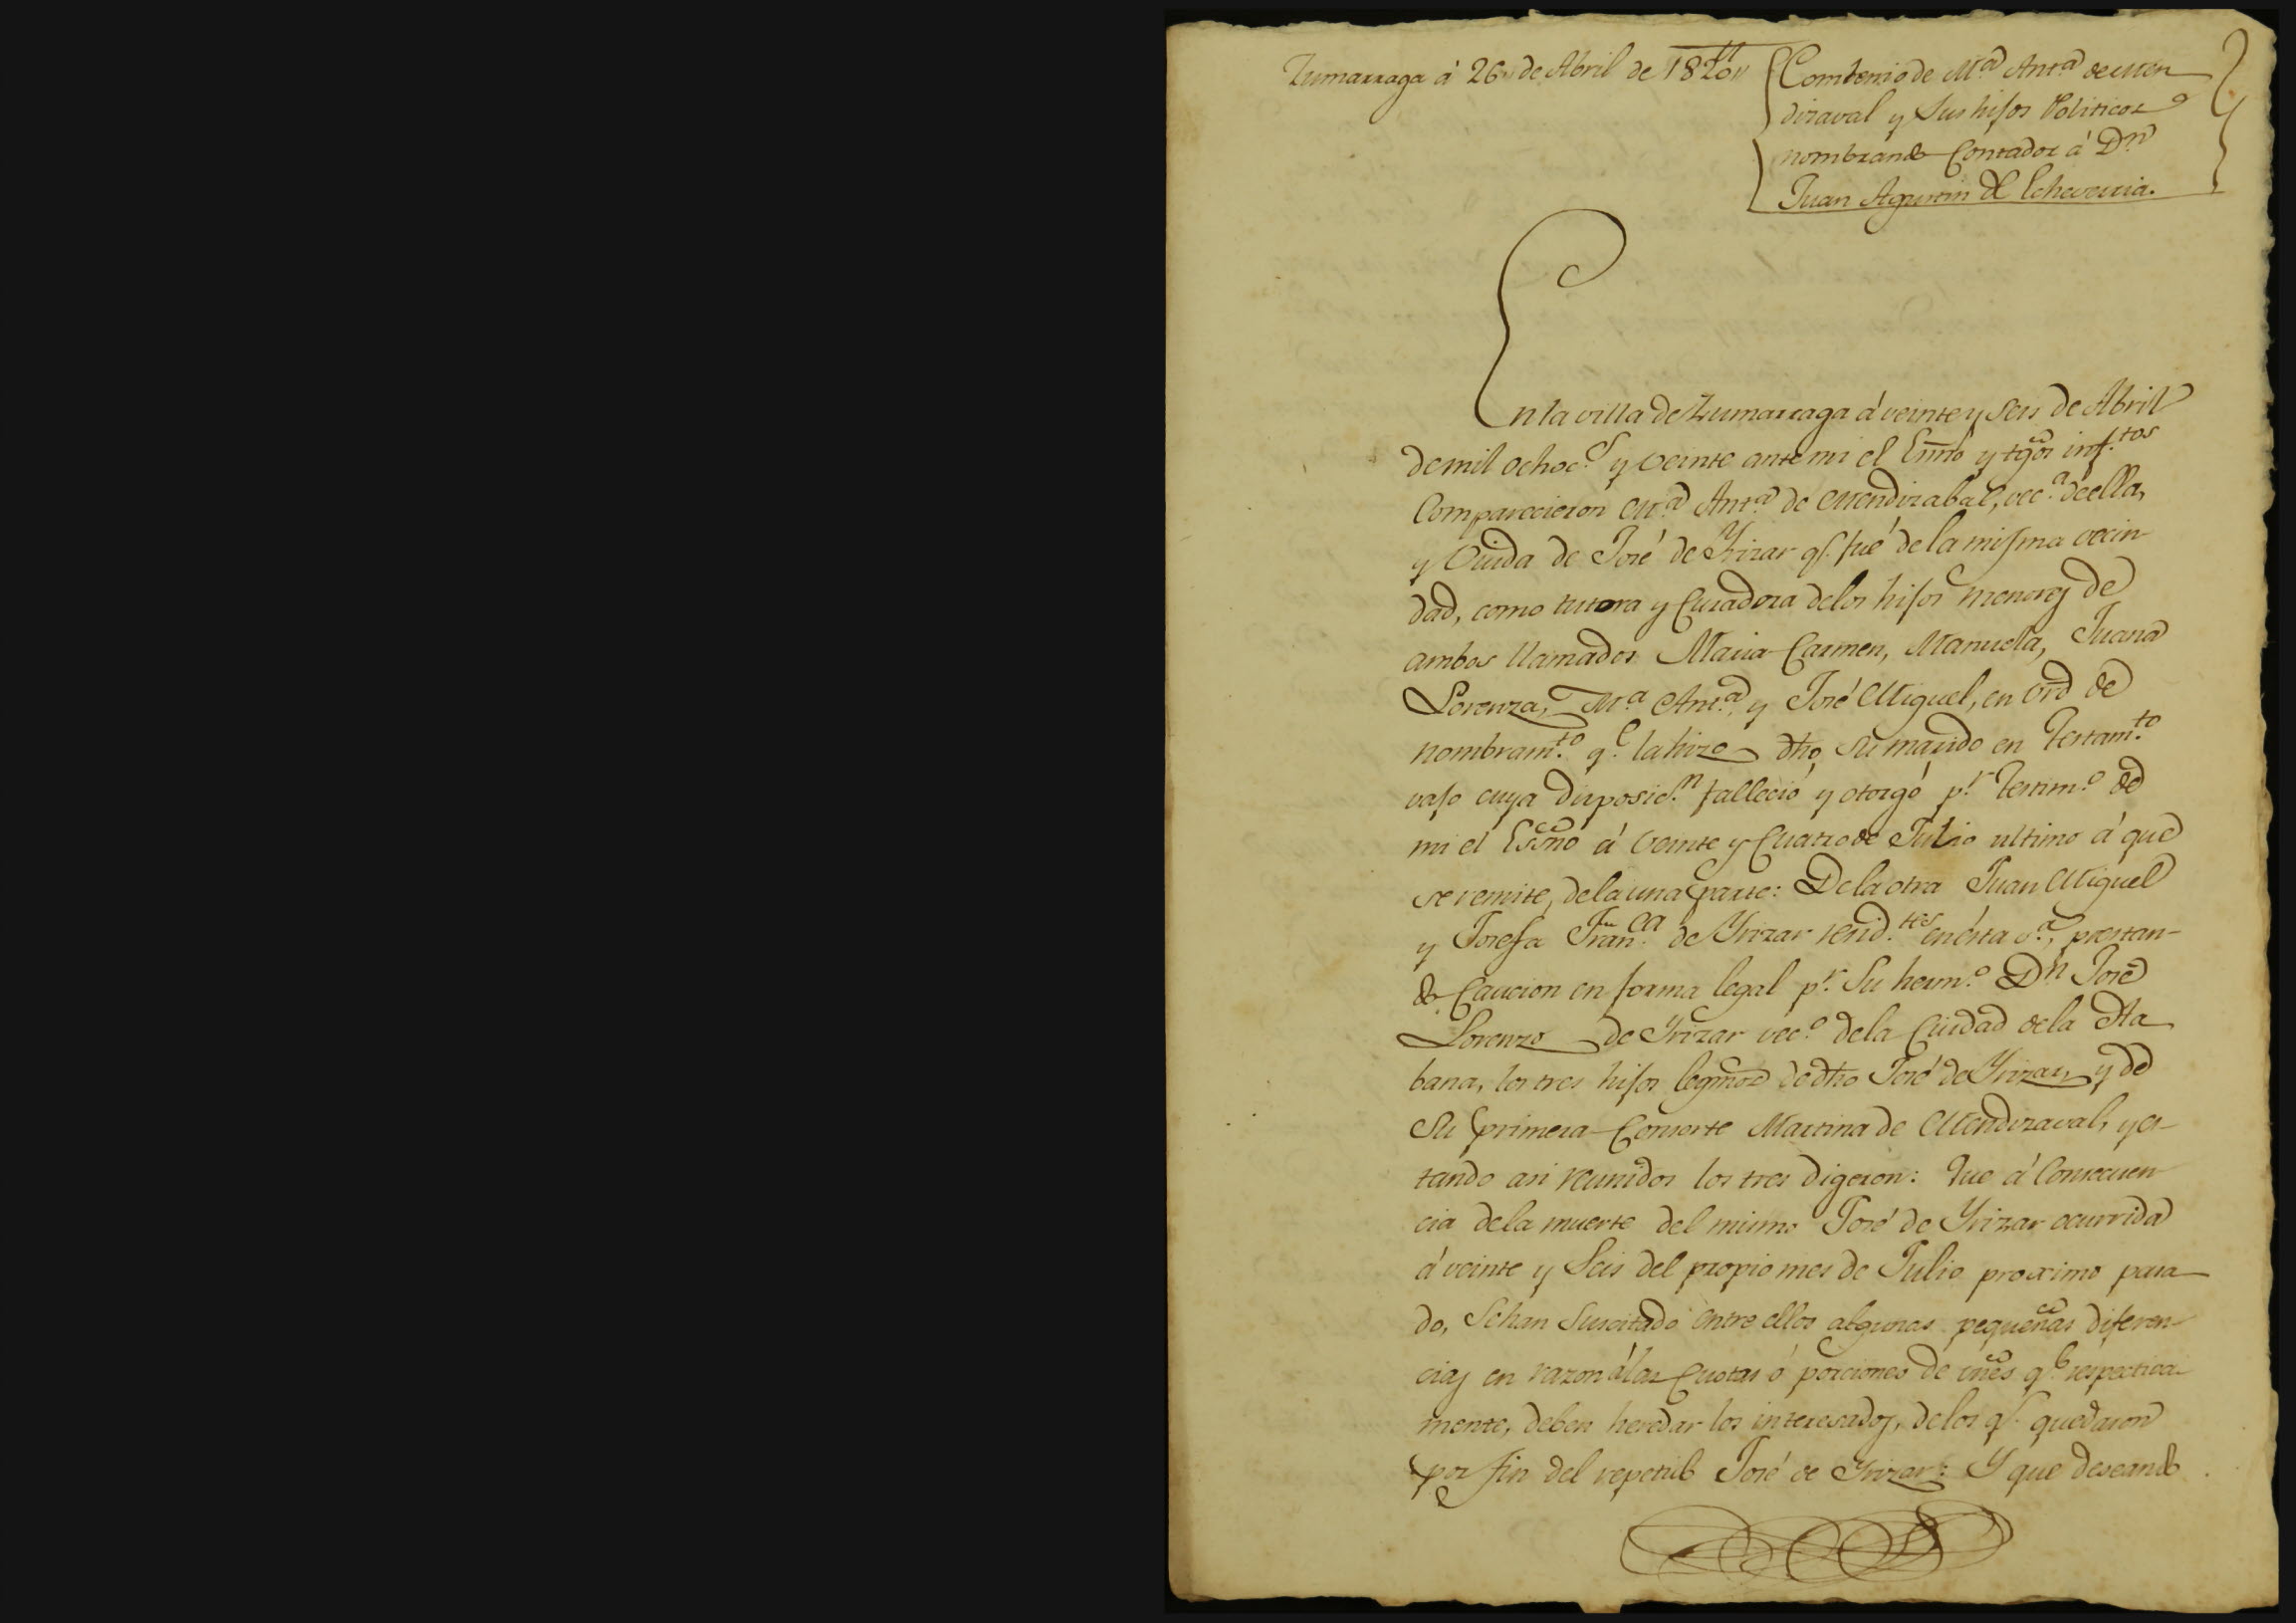 Zumarraga á 26 de Abril de 1820
Combenio de M.ª Ant.ª de Men
dizaval y Sus hijos Politicos
nombrando Contador á Dn
Juan Agustin de Echeverria.
En la villa de Zumarraga á veinte y Seis de Abril
de mil ochoc.s y veinte ante mi el Essno y tgos inf.tos
Comparecieron M.ª Ant.ª de Mendizabal, vec.ª de ella,
y Viuda de José de Yrizar q.e fué de la misma vecin
dad, como tutora y Curadora de los hijos menores de
ambos llamados Maria Carmen, Manuela, Juana
Lorenza, M.ª Ant.ª y José Miguel, en vrd de
nombram.to q.e la hizo dho su marido en Testam.to
vajo cuya disposic.n falleció y otorgó p.r Testim.o de
mi el Essno á veinte y Cuatro de Julio ultimo á que
se remite, de la una parte: De la otra Juan Miguel
y Josefa Fran.ca de Yrizar resid.tes en ésta v.ª, prestan-
do Caucion en forma legal p.r Su herm.o Dn José
Lorenzo de Yrizar vec.o de la Ciudad de la Ha
bana, los tres hijos legmos de dho José de Yrizar, y de
Su primera Consorte Martina de Mendizaval, y es-
tando asi reunidos los tres digeron: Que á Consecuen
cia de la muerte del mismo José de Yrizar ocurrida
á veinte y Seis del propio mes de Julio proximo pasa
do, Se han Suscitado entre ellos algunas pequeñas diferen-
cias en razon á las Cuotas ó porciones de vnes q.e respectiva-
mente, deben heredar los interesados, de los q.e quedaron
por fin del repetido José de Yrizar: Y que deseando